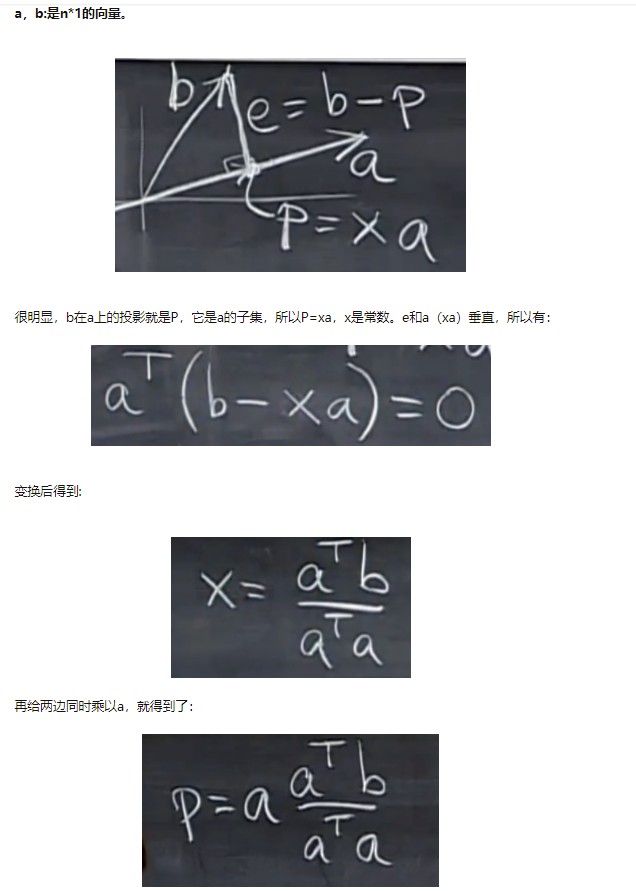 a，b:是n*1的向量。
b e = b - P
a
P = x a
很明显，b在a上的投影就是P，它是a的子集，所以P=xa，x是常数。e和a（xa）垂直，所以有：
aᵀ (b - xa) = 0
变换后得到:
x = aᵀb / aᵀa
再给两边同时乘以a，就得到了：
P = a aᵀb / aᵀa